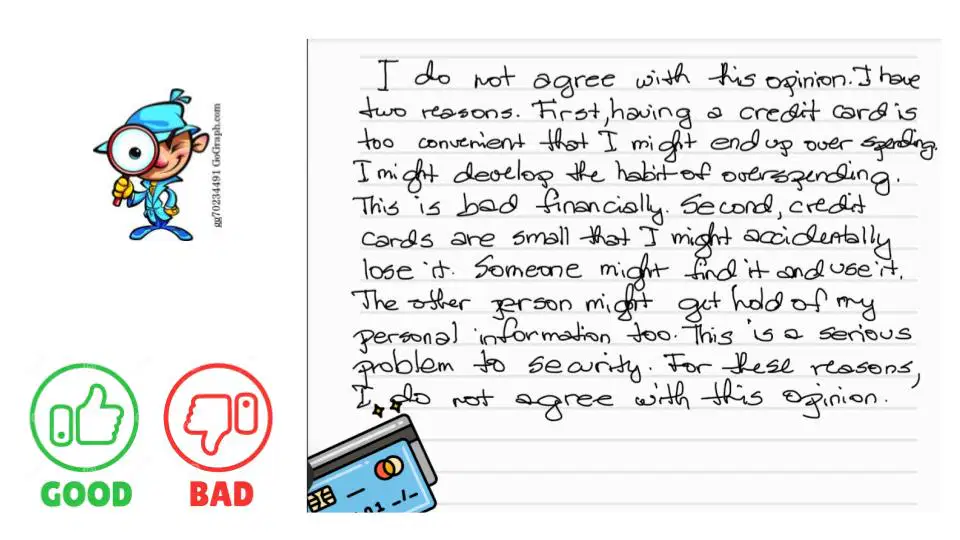 gg70234491 GoGraph.com
I do not agree with this opinion. I have
two reasons. First, having a credit card is
too convenient that I might end up over spending.
I might develop the habit of overspending.
This is bad financially. Second, credit
cards are small that I might accidentally
lose it. Someone might find it and use it.
The other person might get hold of my
personal information too. This is a serious
problem to security. For these reasons,
I do not agree with this opinion.
GOOD
BAD